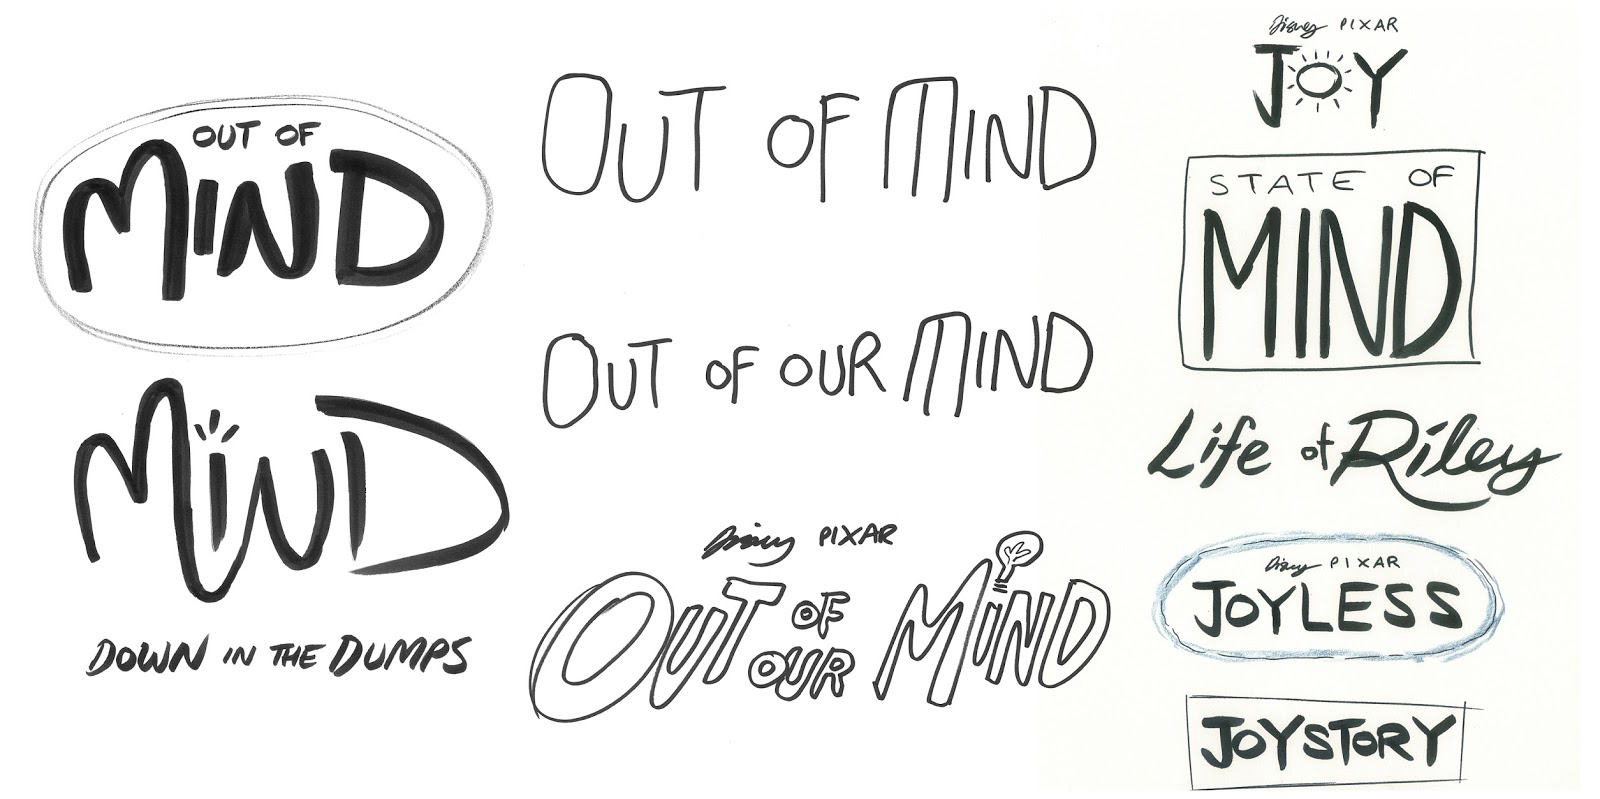 OUT OF
MIND
MIND
DOWN IN THE DUMPS
OUT OF MIND
OUT OF OUR MIND
Disney PIXAR
OUT OF
OUR
MIND
Disney PIXAR
JOY
STATE OF
MIND
Life of Riley
Disney PIXAR
JOYLESS
JOYSTORY